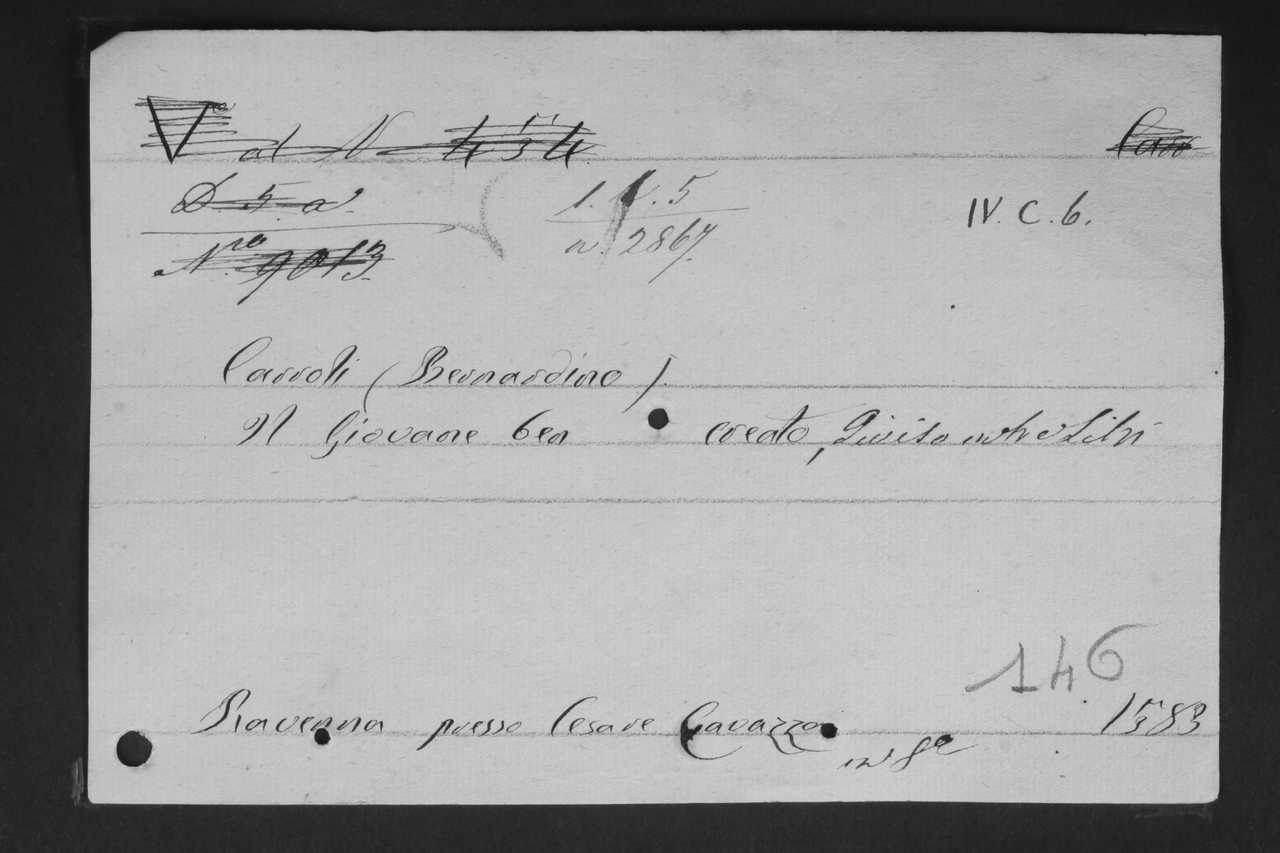 V. al N. 454
Carr
D. 5. a.
1. V. 5
IV. C. 6.
N.ro 9013.
a. 2867.
Carroli (Bernardino).
Il Giovane ben creato, Diviso in tre Libri
146
Ravenna presso Cesare Cavazza
1583
in 8º